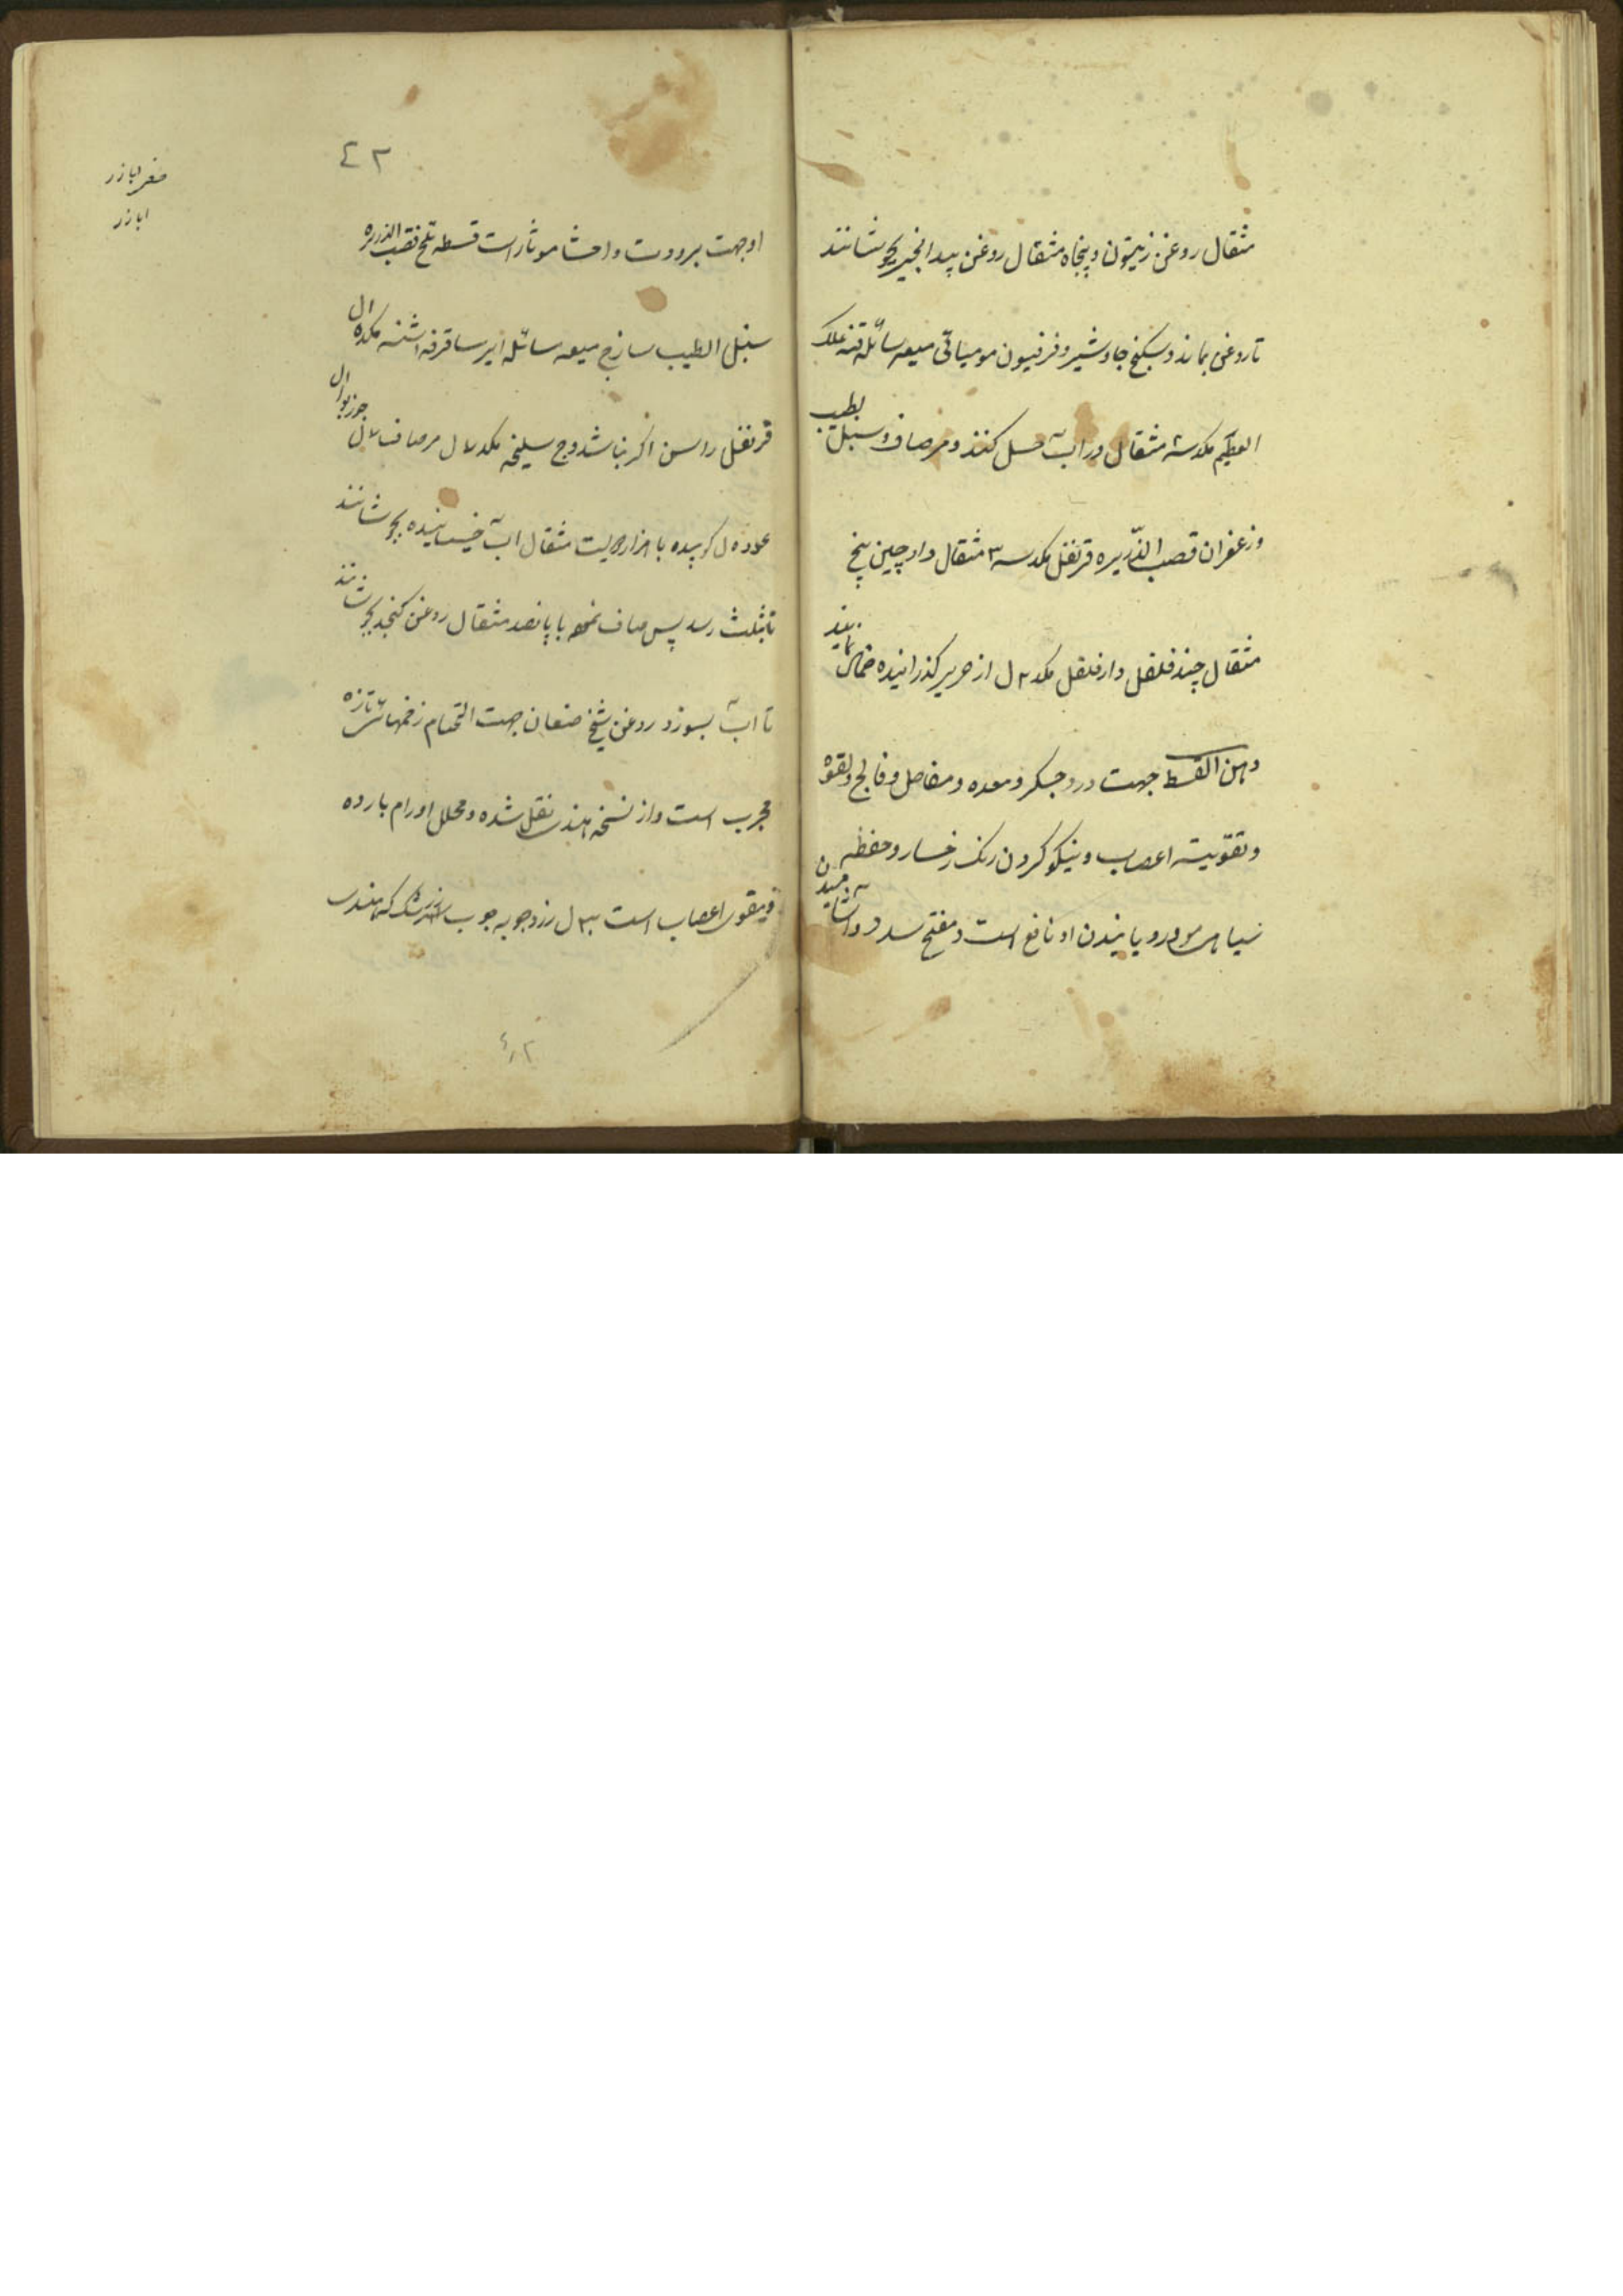 مثقال روغن زیتون و پنجاه مثقال روغن بیدانجیر بجوشانند
تا روغن بماند و سکبینج جاوشیر و فرفیون مومیائی میعه سائله قنه علک
البطم مثقال در آب حل کنند و مر صاف و سنبل الطیب
و زعفران قصب الذریره قرنفل مکد سه ۳ مثقال دارچین پنج
مثقال جند فلفل دارفلفل مکد ۲ ل از حریر کذرانیده ضماد نمایند
دهن القسط جهت درد جکر و معده و مفاصل و فالج و لقوه
و تقویت اعصاب و نیکو کردن رنک رخسار و حفظ
سیاهی مو و رویانیدن او نافع است و مفتح سدد و آشامیدن
٤٢
او جهت برودت و احشا موثر است قسط تلخ قصب الذریره
سنبل الطیب ساذج میعه سائله ایرسا قرفه اشنه مکد ۵ ل
قرنفل راسن اکر نباشد وج سلیخه مکد ۷ ل مر صاف ۷ ل جوزبوا ل
عود ۵ ل کوبیده با هزار و دویست مثقال آب خیسانیده بجوشانند
تا بثلث رسد پس صاف نموده با پانصد مثقال روغن کنجد بجوشانند
تا آب بسوزد روغن شیخ صنعان جهت التحام زخمهای تازه
مجرب است و از نسخه هندی نقل شده و محلل اورام بارده
و مقوی اعصاب است ۳ ل زردچوبه چوب که هندی